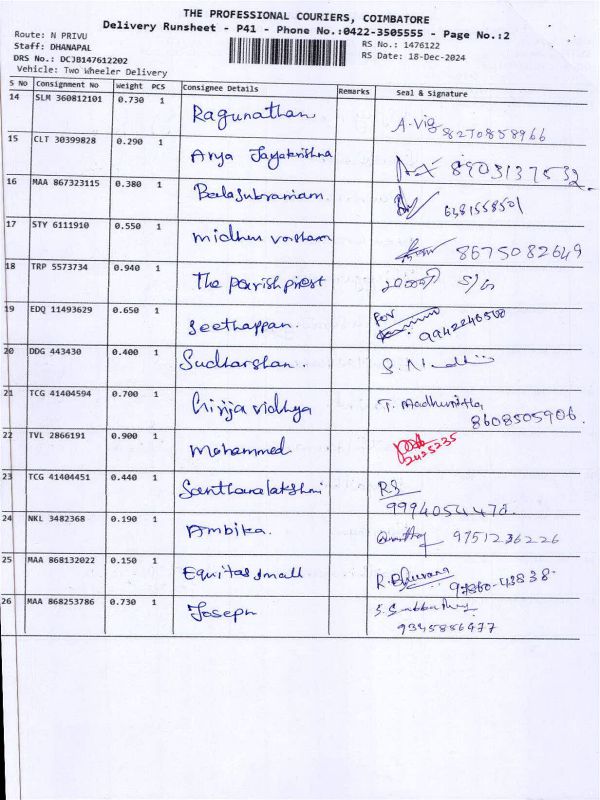 THE PROFESSIONAL COURIERS, COIMBATORE
Delivery Runsheet - P41 - Phone No.:0422-3505555 - Page No.:2
Route: N PRIVU
Staff: DHANAPAL
DRS No.: DCJB147612202
Vehicle: Two Wheeler Delivery
RS No.: 1476122
RS Date: 18-Dec-2024
S No Consignment No Weight PCS Consignee Details Remarks Seal & Signature
14 SLM 360812101 0.730 1 Ragunathan A. Vig 8270858966
15 CLT 30399828 0.290 1 Arya Jayakrishna 8903137532
16 MAA 867323115 0.380 1 Balasubramam 6381558501
17 STY 6111910 0.550 1 midhun varshan 8675082649
18 TRP 5573734 0.940 1 The parish priest
19 EDQ 11493629 0.650 1 Seethappan. 9942246500
20 DDG 443430 0.400 1 Sudharshan.
21 TCG 41404594 0.700 1 Girija vidhya T. Madhumitha 8608505906.
22 TVL 2866191 0.900 1 Mohammed 2425235
23 TCG 41404451 0.440 1 Santhanalakshmi RS 9994054470.
24 NKL 3482368 0.190 1 Ambika. 9751236226
25 MAA 868132022 0.150 1 Equitas small R. Bhuvana 97360-43838-
26 MAA 868253786 0.730 1 Joseph 9345886477